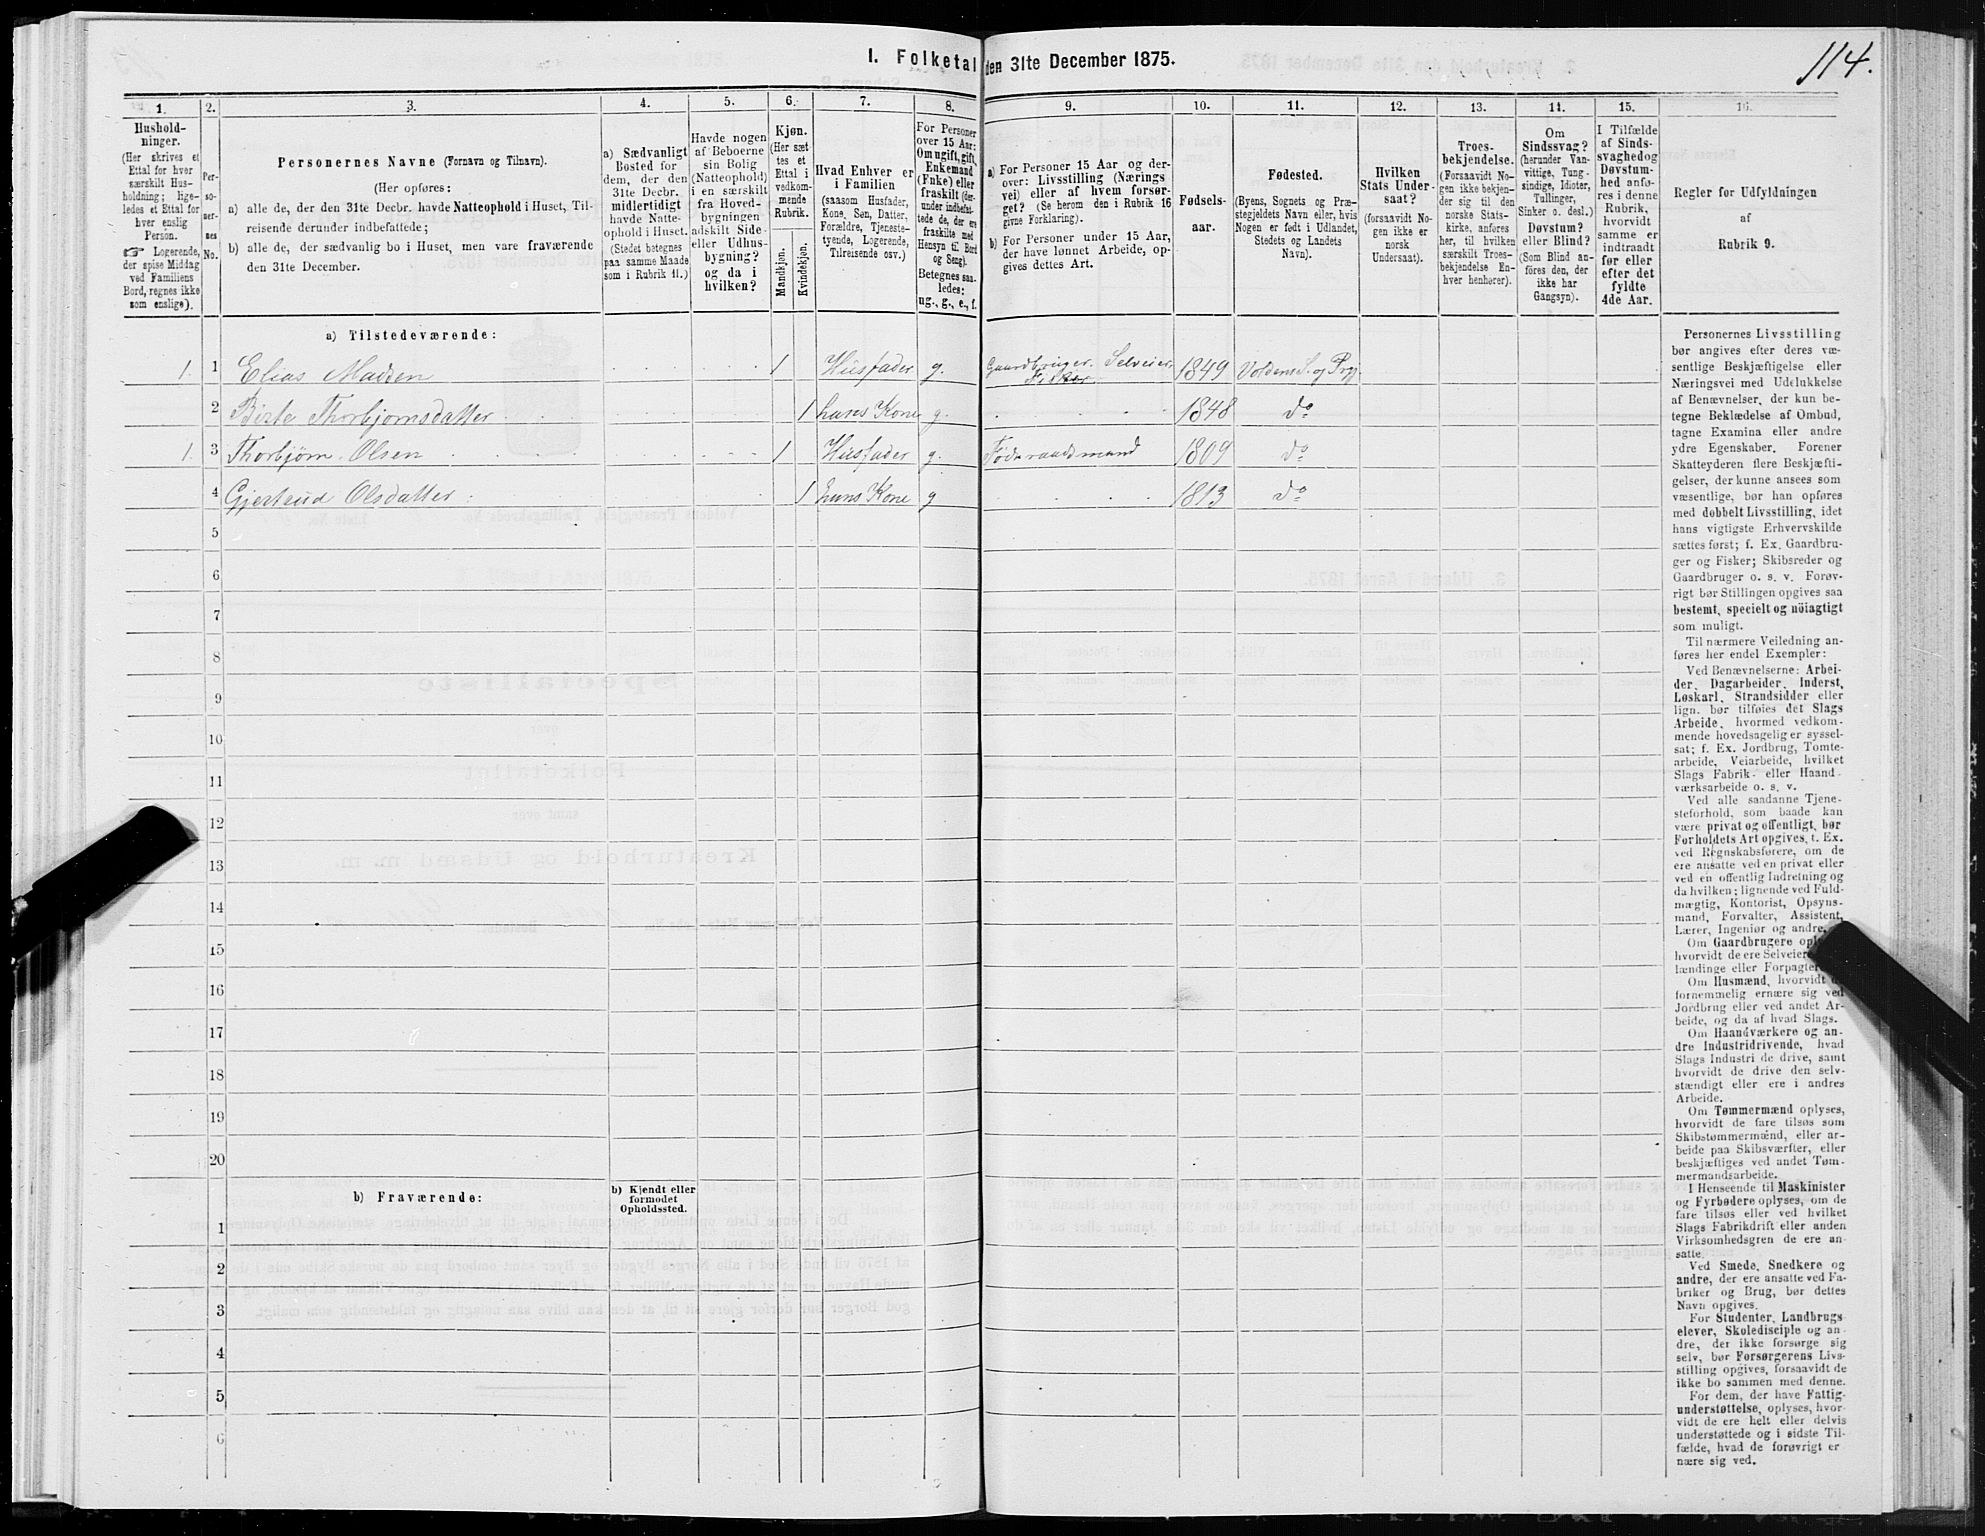 I. Folketal den 31te December 1875.
114.
1.
2.
3.
4.
5.
6.
7.
8.
9.
10.
11.
12.
13.
14.
15.
16.
Hushold-
ninger.
(Her skrives et
Ettal for hver
særskilt Hus-
holdning; lige-
ledes et Ettal for
hver enslig
Person.
☞ Logerende,
der spise Middag
ved Familiens
Bord, regnes ikke
som enslige).
Per-
so-
ner-
nes
No.
Personernes Navne (Fornavn og Tilnavn).
(Her opføres:
a) alle de, der den 31te Decbr. havde Natteophold i Huset, Til-
reisende derunder indbefattede;
b) alle de, der sædvanlig bo i Huset, men vare fraværende
den 31te December.
a) Sædvanligt
Bosted for
dem, der den
31te Decbr.
midlertidigt
havde Natte-
ophold i Huset.
(Stedet betegnes
paa samme Maade
som i Rubrik 11.)
Havde nogen
af Beboerne
sin Bolig
(Natteophold)
i en særskilt
fra Hoved-
bygningen
adskilt Side-
eller Udhus-
bygning?
og da i
hvilken?
Kjøn.
(Her sæt-
tes et
Ettal i
vedkom-
mende
Rubrik.
Mandkjøn.
Kvindekjøn.
Hvad Enhver er
i Familien
(saasom Husfader,
Kone, Søn, Datter,
Forældre, Tjeneste-
tyende, Logerende,
Tilreisende osv.)
For Personer
over 15 Aar:
Om ugift, gift,
Enkemand
(Enke) eller
fraskilt (der-
under indbefat-
tede de, der ere
fraskilte med
Hensyn til Bord
og Seng).
Betegnes saa-
ledes:
ug., g., e., f.
a) For Personer 15 Aar og der-
over: Livsstilling (Nærings
vei) eller af hvem forsør-
get? (Se herom den i Rubrik 16
givne Forklaring).
b) For Personer under 15 Aar,
der have lønnet Arbeide, op-
gives dettes Art.
Fødsels-
aar.
Fødested.
(Byens, Sognets og Præ-
stegjeldets Navn eller, hvis
Nogen er født i Udlandet,
Stedets og Landets
Navn).
Hvilken
Stats Under-
saat?
(forsaavidt No-
gen ikke er
norsk
Undersaat).
Troes-
bekjendelse.
(Forsaavidt No-
gen ikke bekjen-
der sig til den
norske Stats-
kirke, anføres
her, til hvilken
særskilt Troes-
bekjendelse En-
hver henhører).
Om
Sindssvag?
(herunder Van-
vittige, Tung-
sindige, Idioter,
Tullinger,
Sinker o. desl.)
Døvstum?
eller Blind?
(Som Blind an-
føres den, der
ikke har
Gangsyn).
I Tilfælde
af Sinds-
svaghedog
Døvstum-
hed anfø-
res i denne
Rubrik,
hvorvidt
samme er
indtraadt
før eller
efter det
fyldte
4de Aar.
Regler for Udfyldningen
af
Rubrik 9.
a) Tilstedeværende:
1. 1 Elias Madsen 1 Husfader g. Gaardbruger. Selveier. Fisker 1849 Voldens S. og Prgj.
2 Birte Thorbjørnsdatter 1 hans Kone g. 1848 do
1. 3 Thorbjørn Olsen 1 Husfader g. Föderaadsmand 1809 do
4 Gjertrud Olsdatter 1 hans Kone g 1813 do
5
6
7
8
9
10
11
12
13
14
15
16
17
18
19
20
b) Fraværende:
b) Kjendt eller
formodet
Opholdssted.
1
2
3
4
5
6
Personernes Livsstilling
bør angives efter deres væ-
sentlige Beskjæftigelse eller
Næringsvei med Udelukkelse
af Benævnelser, der kun be-
tegne Beklædelse af Ombud,
tagne Examina eller andre
ydre Egenskaber. Forener
Skatteyderen flere Beskjæfti-
gelser, der kunne ansees som
væsentlige, bør han opføres
med dobbelt Livsstilling, idet
hans vigtigste Erhvervskilde
sættes først; f. Ex. Gaardbru-
ger og Fisker; Skibsreder og
Gaardbruger o. s. v. Forøv-
rigt bør Stillingen opgives saa
bestemt, specielt og nöiagtigt
som muligt.
Til nærmere Veiledning an-
føres her endel Exempler:
Ved Benævnelserne: Arbei-
der, Dagarbeider, Inderst,
Løskarl, Strandsidder eller
lign. bør tilføies det Slags
Arbeide, hvormed vedkom-
mende hovedsagelig er syssel-
sat; f. Ex. Jordbrug, Tomte-
arbeide, Veiarbeide, hvilket
Slags Fabrik- eller Haand
værksarbeide o. s. v.
Ved alle saadanne Tjene-
steforhold, som baade kan
være privat og offentligt, bør
Forholdets Art opgives, t. Ex.
ved Regnskabsførere, om de
ere ansatte ved en privat eller
ved en offentlig Indretning og
da hvilken; lignende ved Fuld-
mægtig, Kontorist, Opsyns-
mand, Forvalter, Assistent,
Lærer, Ingeniør og andre.
Om Gaardbrugere
hvorvidt de ere Selveiere
lændinge eller Forpagtere
Om Husmænd, hvorvidt
fornemmelig ernære sig ved
Jordbrug eller ved andet Ar-
beide, og da af hvad Slags.
Om Haandværkere og an-
dre Industridrivende, hvad
Slags Industri de drive, samt
hvorvidt de drive den selv-
stændigt eller ere i andres
Arbeide.
Om Tømmermænd oplyses,
hvorvidt de fare tilsøs som
Skibstømmermænd, eller ar-
beide paa Skibsværfter, eller
beskjæftiges ved andet Tøm-
mermandsarbeide.
I Henseende til Maskinister
og Fyrbødere oplyses, om de
fare tilsøs eller ved hvilket
Slags Fabrikdrift eller anden
Virksomhedsgren de ere an-
satte.
Ved Smede, Snedkere og
andre, der ere ansatte ved Fa-
briker og Brug, bør dettes
Navn opgives.
For Studenter, Landbrugs
elever, Skoledisciple og an-
dre, der ikke forsørge sig
selv, bør Forsørgerens Livs-
stilling opgives, forsaavidt de
ikke bo sammen med denne.
For dem, der have Fattig-
understøttelse, oplyses, hvor-
vidt de ere helt eller delvis
understøttede og i sidste Til-
fælde, hvad de forøvrigt er
nære sig ved.